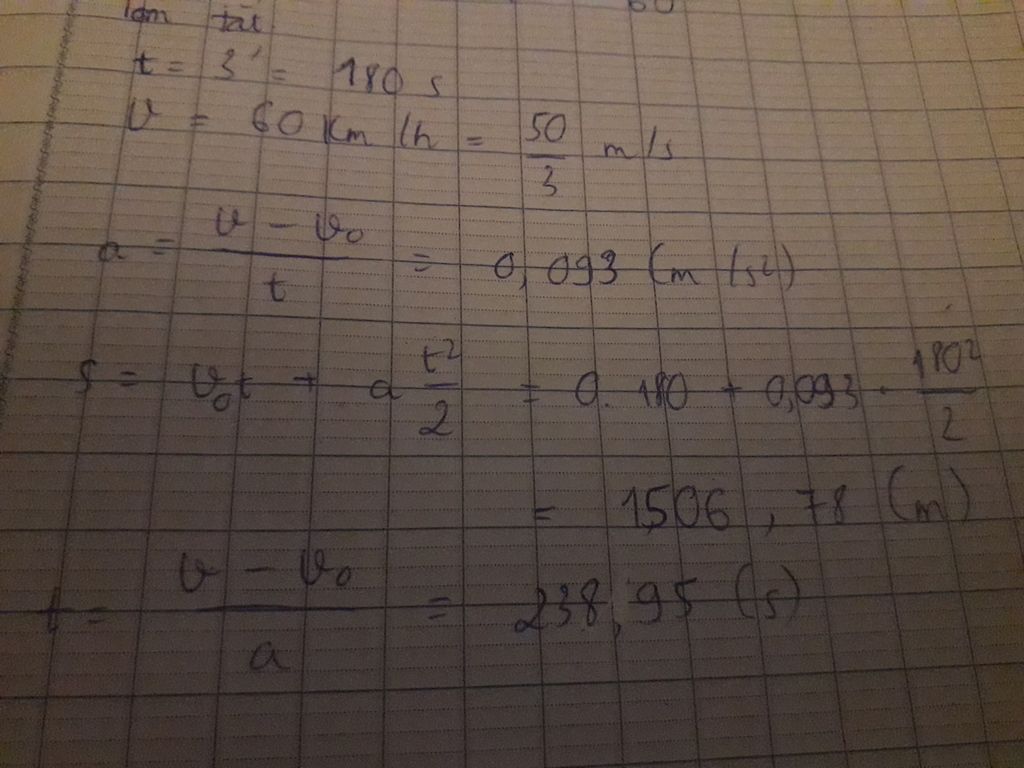 tóm tắt
t = 3' = 180 s
v = 60 Km/h = 50/3 m/s
a = (v - v₀)/t = 0,093 (m/s²)
S = v₀t + a t²/2 = 0.180 + 0,093 . 180²/2
= 1506,78 (m)
t = (v - v₀)/a = 238,95 (s)